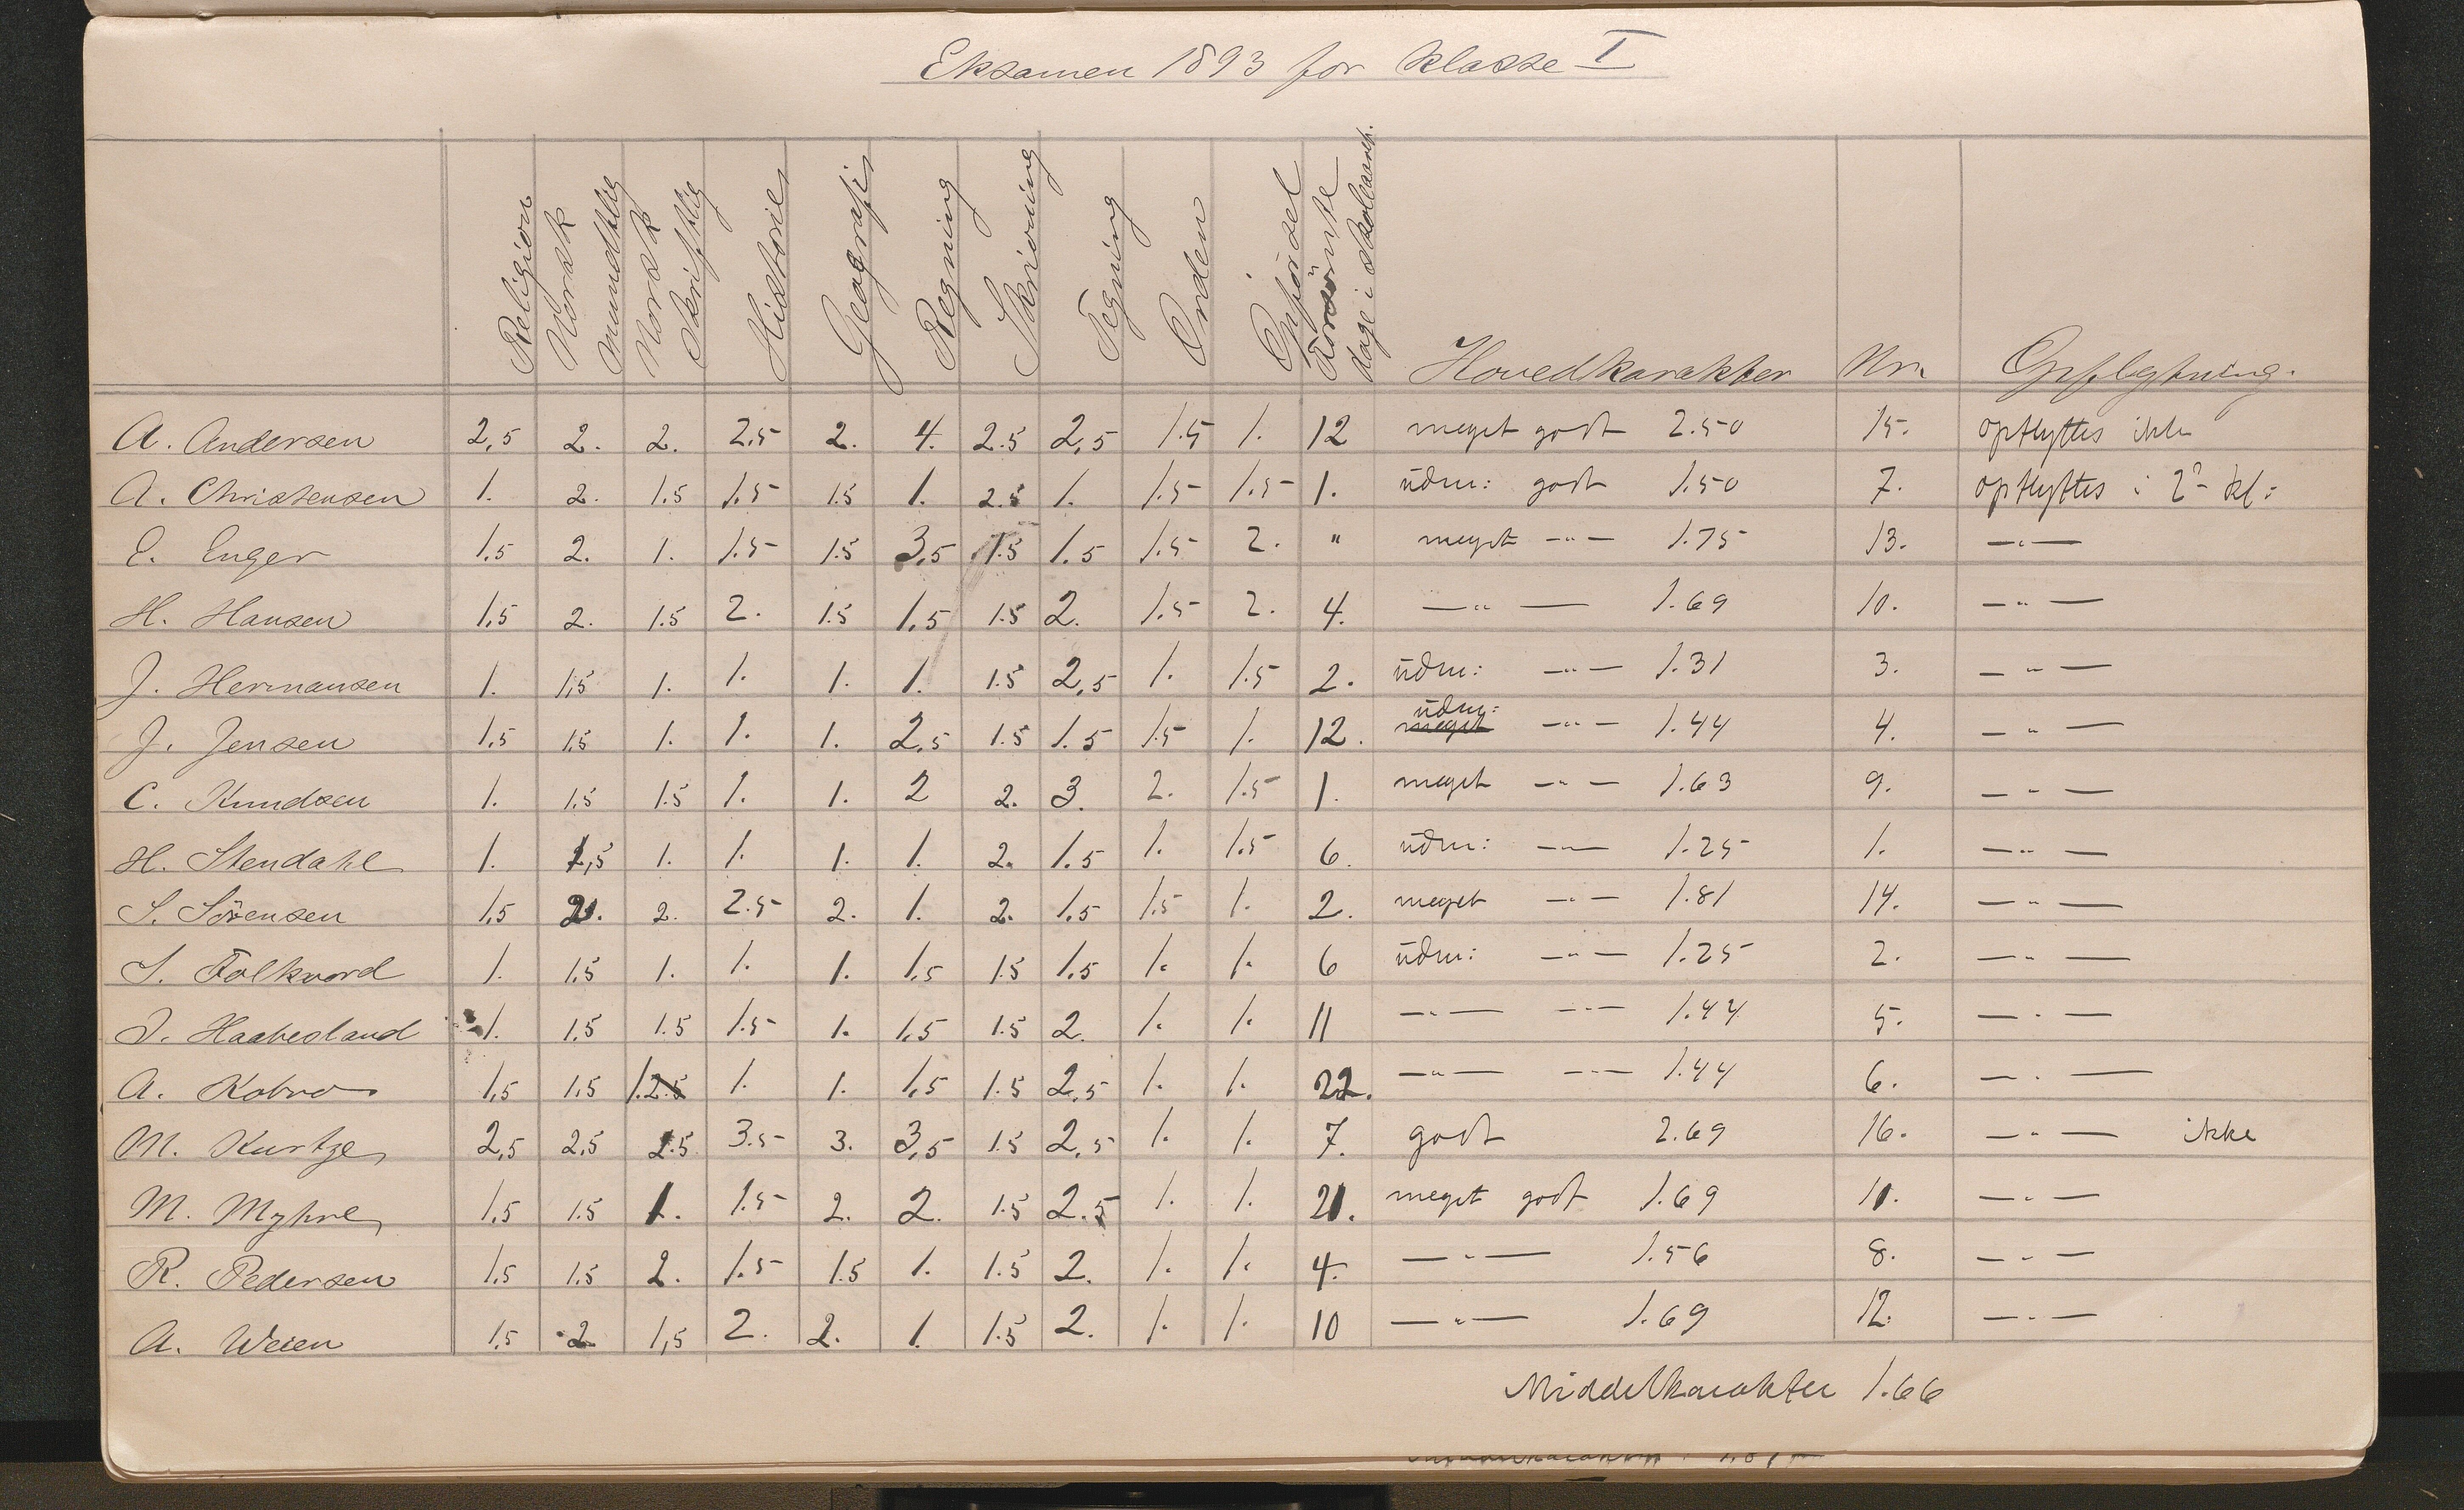 Eksamen 1893 for Klasse I
Religion Norsk mundtlig Norsk skriftlig Historie Geografi Regning Skrivning Tegning Orden Opförsel Forsömte dage i skoleaaret. Hovedkarakter Nr. Opflytning.
A. Andersen 2,5 2. 2. 2.5 2. 4. 2.5 2,5 1.5 1. 12 meget godt 2.50 15. opflyttes ikke
A. Christensen 1. 2. 1.5 1.5 1.5 1. 2.5 1. 1.5 1.5 1. üdm: godt 1.50 7. opflyttes i 2n kl:
E. Enger 1.5 2. 1. 1.5 1.5 3,5 1.5 1.5 1.5 2. " meget —"— 1.75 13. —"—
H. Hansen 1,5 2. 1.5 2. 1.5 1,5 1.5 2. 1.5 2. 4. —"— 1.69 10. —"—
J. Hermansen 1. 1,5 1. 1. 1. 1. 1.5 2,5 1. 1.5 2. üdm: —"— 1.31 3. —"—
J. Jensen 1,5 1,5 1. 1. 1. 2,5 1.5 1.5 1.5 1. 12. meget üdm: —"— 1.44 4. —"—
C. Knudsen 1. 1,5 1.5 1. 1. 2 2. 3. 2. 1.5 1. meget —"— 1.63 9. —"—
H. Stendahl 1. 1,5 1. 1. 1. 1. 2. 1.5 1. 1.5 6. üdm: —"— 1.25 1. —"—
S. Sörensen 1,5 2. 2. 2.5 2. 1. 2. 1.5 1.5 1. 2. meget —"— 1.81 14. —"—
S. Folkvord 1. 1,5 1. 1. 1. 1.5 1.5 1.5 1. 1. 6 üdm: —"— 1.25 2. —"—
1. 1,5 1.5 1.5 1. 1,5 1.5 2. 1. 1. 11 —"— —"— 1.44 5. —"—
A. Kobro 1,5 1,5 1.2.5 1. 1. 1,5 1.5 2,5 1. 1. 22. —"— —"— 1.44 6. —"—
M. Kurtze 2,5 2,5 2.5 3.5 3. 3,5 1.5 2,5 1. 1. 7. godt 2.69 16. —"— ikke
M. Myhre 1,5 1.5 1. 1.5 2. 2. 1.5 2.5 1. 1. 21. meget godt 1.69 11. —"—
R. Pedersen 1,5 1.5 2. 1.5 1.5 1. 1.5 2. 1. 1. 4. —"— 1.56 8. —"—
A. Weien 1.5 2 1,5 2. 2. 1. 1.5 2. 1. 1. 10 —"— 1.69 12. —"—
Middelkarakter 1.66